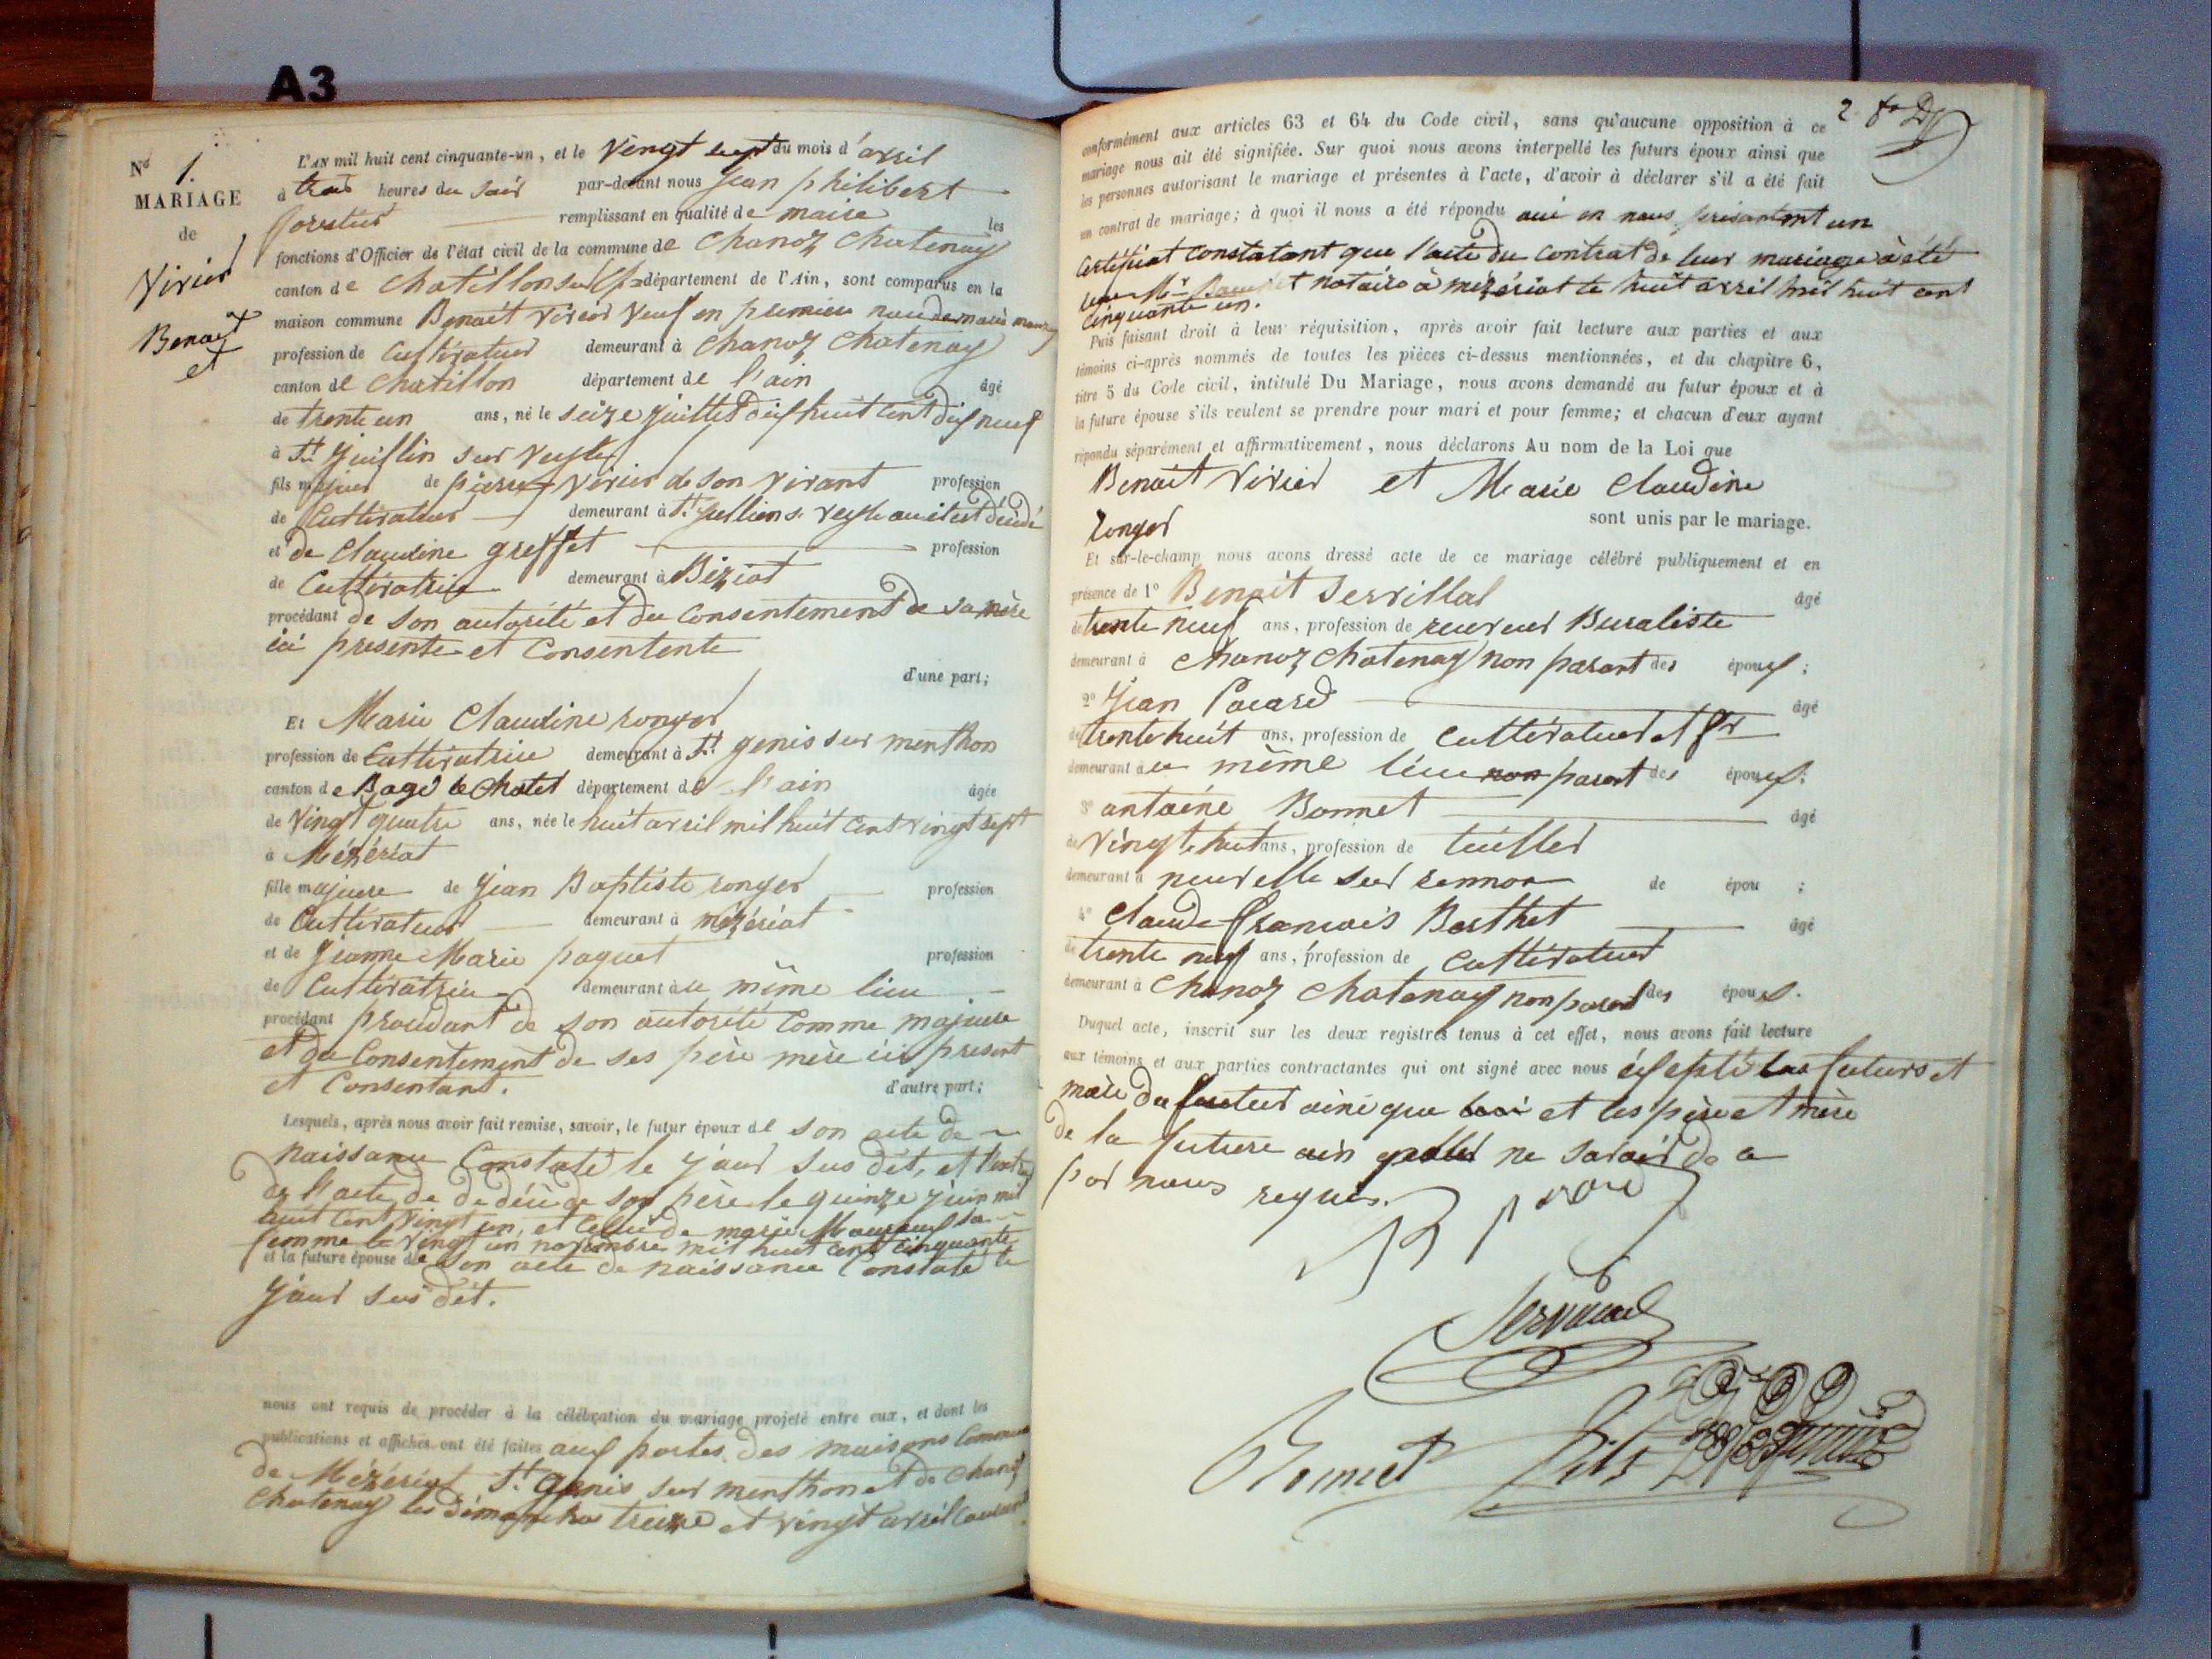 A3
Nº 1.
MARIAGE
de
Vivier
Benoit
et
L'AN mil huit cent cinquante-un, et le vingt sept du mois d'avril
à trois heures du soir par-devant nous jean philibert
forestier remplissant en qualité de maire les
fonctions d'Officier de l'état civil de la commune de Chanoz Chatenay
canton de Chatillon sur département de l'Ain, sont comparus en la
maison commune Benoit Vivier Veuf en premier
profession de Cultivateur demeurant à Chanoz Chatenay
canton de Chatillon département de l'ain âgé
de trente un ans, né le seize juillet dix huit cent dix neuf
à St juillin sur Veyle
fils majeur de pierre Vivier de son vivant profession
de Cultivateur demeurant à St jullien s. Veyle où il est décédé
et de Claudine greffet profession
de Cultivatrice demeurant à Biziat
procédant de son autorité et du Consentement de sa mère
ici presente et Consentente
d'une part;
Et Marie Claudine ronger
profession de Cultivatrice demeurant à St genis sur menthon
canton de Bagé le Chatel département de l'ain âgée
de Vingt quatre ans, née le huit avril mil huit Cent vingt sept
à Mézériat
fille majeure de jean Baptiste ronger profession
de Cultivateur demeurant à mézériat
et de jeanne Marie paquet profession
de Cultivatrice demeurant au même lieu
procédant procédant de son autorité Comme majeure
et du Consentement de ses père mère ici present
et Consentant. d'autre part;
Lesquels, après nous avoir fait remise, savoir, le futur époux de son acte de
naissance Constaté le jour sus dit, et
de l'acte de de décè de son père le quinze juin mil
huit Cent vingt un, et Celui de marie sa
femme le vingt un novembre mil huit cent cinquante
et la future épouse de son acte de naissance Constaté le
jour sus dit.
nous ont requis de procéder à la célébration du mariage projeté entre eux, et dont les
publications et affiches ont été faites aux portes des maisons Commune
de Mézériat St Genis sur menthon et de Chanoz
Chatenay les dimanche treize et vingt avril Courant
2
conformément aux articles 63 et 64 du Code civil, sans qu'aucune opposition à ce
mariage nous ait été signifiée. Sur quoi nous avons interpellé les futurs époux ainsi que
les personnes autorisant le mariage et présentes à l'acte, d'avoir à déclarer s'il a été fait
un contrat de mariage; à quoi il nous a été répondu oui en nous présentent un
Certificat Constatant que l'acte du Contrat de leur mariage à été
Mr notaire à mézériat le huit avril mil huit cent
Cinquante un.
Puis faisant droit à leur réquisition, après avoir fait lecture aux parties et aux
témoins ci-après nommés de toutes les pièces ci-dessus mentionnées, et du chapitre 6,
titre 5 du Code civil, intitulé Du Mariage, nous avons demandé au futur époux et à
la future épouse s'ils veulent se prendre pour mari et pour femme; et chacun d'eux ayant
répondu séparément et affirmativement, nous déclarons Au nom de la Loi que
Benoit Vivier et Marie Claudine
ronger
sont unis par le mariage.
Et sur-le-champ nous avons dressé acte de ce mariage célébré publiquement et en
présence de 1º Benoit Servillat âgé
de trente neuf ans, profession de receveur Buraliste
demeurant à Chanoz Chatenay non parent des époux;
2º jean Pocard âgé
de trente huit ans, profession de Cultivateur et
demeurant au même lieu non parent des époux;
3º antoine Bonnet âgé
de Vingt huit ans, profession de tuillier
demeurant à neuville sur rennon de épou ;
4º Claude francois Berthet âgé
de trente neuf ans, profession de Cultivateur
demeurant à Chanoz Chatenay non parent des épous.
Duquel acte, inscrit sur les deux registres tenus à cet effet, nous avons fait lecture
aux témoins et aux parties contractantes qui ont signé avec nous éxépté les futurs et
mère du futur ainé que et les père et mère
de la future ne savoir de ce
par nous requis.
Bonnet